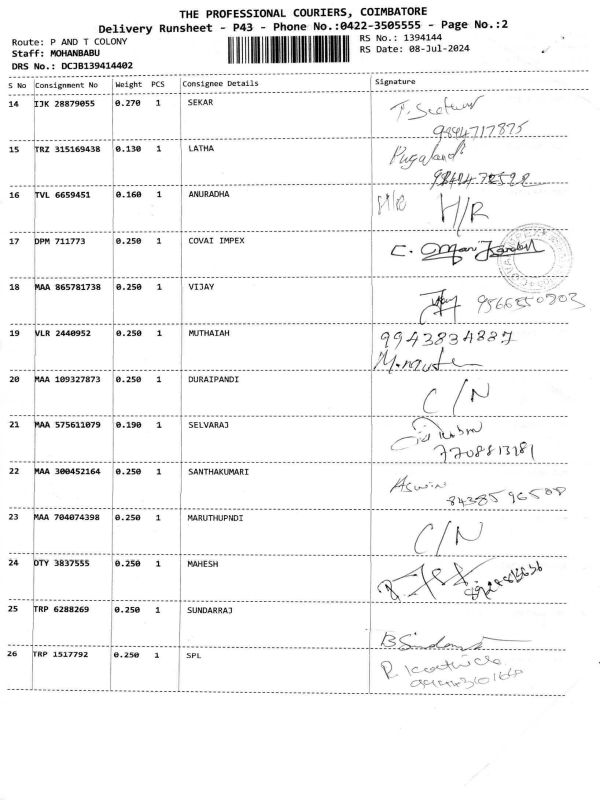 THE PROFESSIONAL COURIERS, COIMBATORE
Delivery Runsheet - P43 - Phone No.:0422-3505555 - Page No.:2
Route: P AND T COLONY
RS No.: 1394144
Staff: MOHANBABU
RS Date: 08-Jul-2024
DRS No.: DCJB139414402
S No Consignment No Weight PCS Consignee Details Signature
14 IJK 28879055 0.270 1 SEKAR
15 TRZ 315169438 0.130 1 LATHA
16 TVL 6659451 0.160 1 ANURADHA H/R
17 DPM 711773 0.250 1 COVAI IMPEX
18 MAA 865781738 0.250 1 VIJAY
19 VLR 2440952 0.250 1 MUTHAIAH 9943834887
20 MAA 109327873 0.250 1 DURAIPANDI C/N
21 MAA 575611079 0.190 1 SELVARAJ
7708813181
22 MAA 300452164 0.250 1 SANTHAKUMARI Aswin
8438596508
23 MAA 704074398 0.250 1 MARUTHUPNDI C/N
24 OTY 3837555 0.250 1 MAHESH
25 TRP 6288269 0.250 1 SUNDARRAJ
26 TRP 1517792 0.250 1 SPL